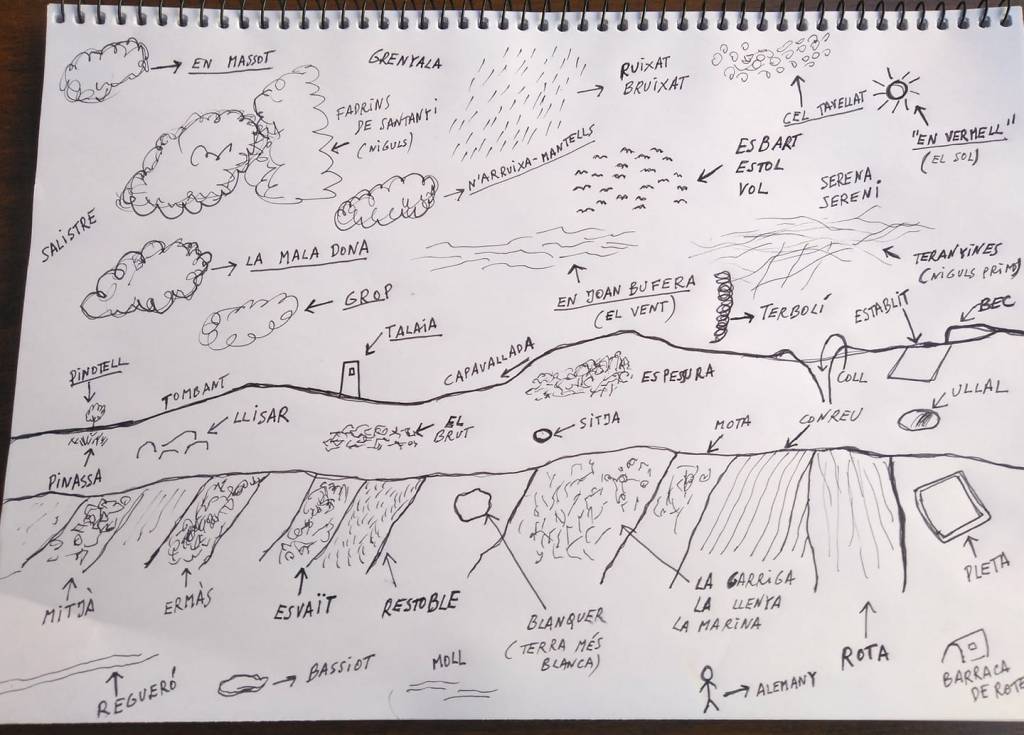 EN MASSOT
GRENYALA
RUIXAT
BRUIXAT
CEL TAVELLAT
"EN VERMELL"
(EL SOL)
FADRINS
DE SANTANYÍ
(NIGULS)
N'ARRUIXA-MANTELLS
ESBART
ESTOL
VOL
SERENA
SERENI
SALISTRE
LA MALA DONA
GROP
EN JOAN BUFERA
(EL VENT)
TERANYINES
(NIGULS PRIMS)
TERBOLÍ
ESTABLIT
BEC
TALAIA
PINOTELL
TOMBANT
CAPAVALLADA
ESPESSURA
COLL
ULLAL
LLISAR
EL
BRUT
SITJA
MOTA
CONREU
PINASSA
MITJÀ
ERMÀS
ESVAÏT
RESTOBLE
BLANQUER
(TERRA MÉS
BLANCA)
LA GARRIGA
LA LLENYA
LA MARINA
ROTA
PLETA
REGUERÓ
BASSIOT
MOLL
ALEMANY
BARRACA
DE ROTER